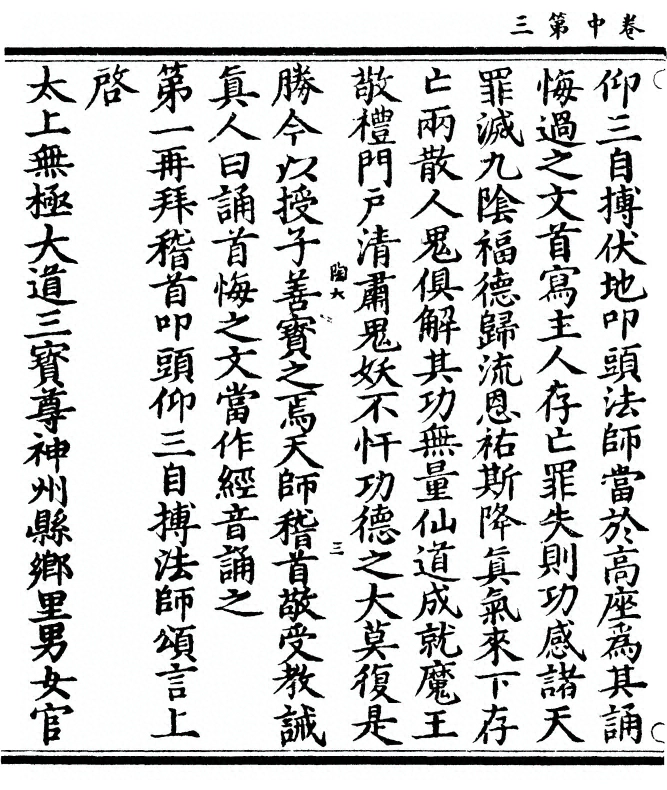 卷中第三
仰三自搏伏地叩頭法師當於高座爲其誦
悔過之文首寫主人存亡罪失則功感諸天
罪滅九陰福德歸流恩祐斯降眞氣來下存
亡兩散人鬼俱解其功無量仙道成就魔王
敬禮門戶清肅鬼妖不忓功德之大莫復是
陶大
三
勝今以授子善寶之焉天師稽首敬受教誡
眞人曰誦首悔之文當作經音誦之
第一再拜稽首叩頭仰三自搏法師頌言上
啓
太上無極大道三寶尊神州縣鄉里男女官